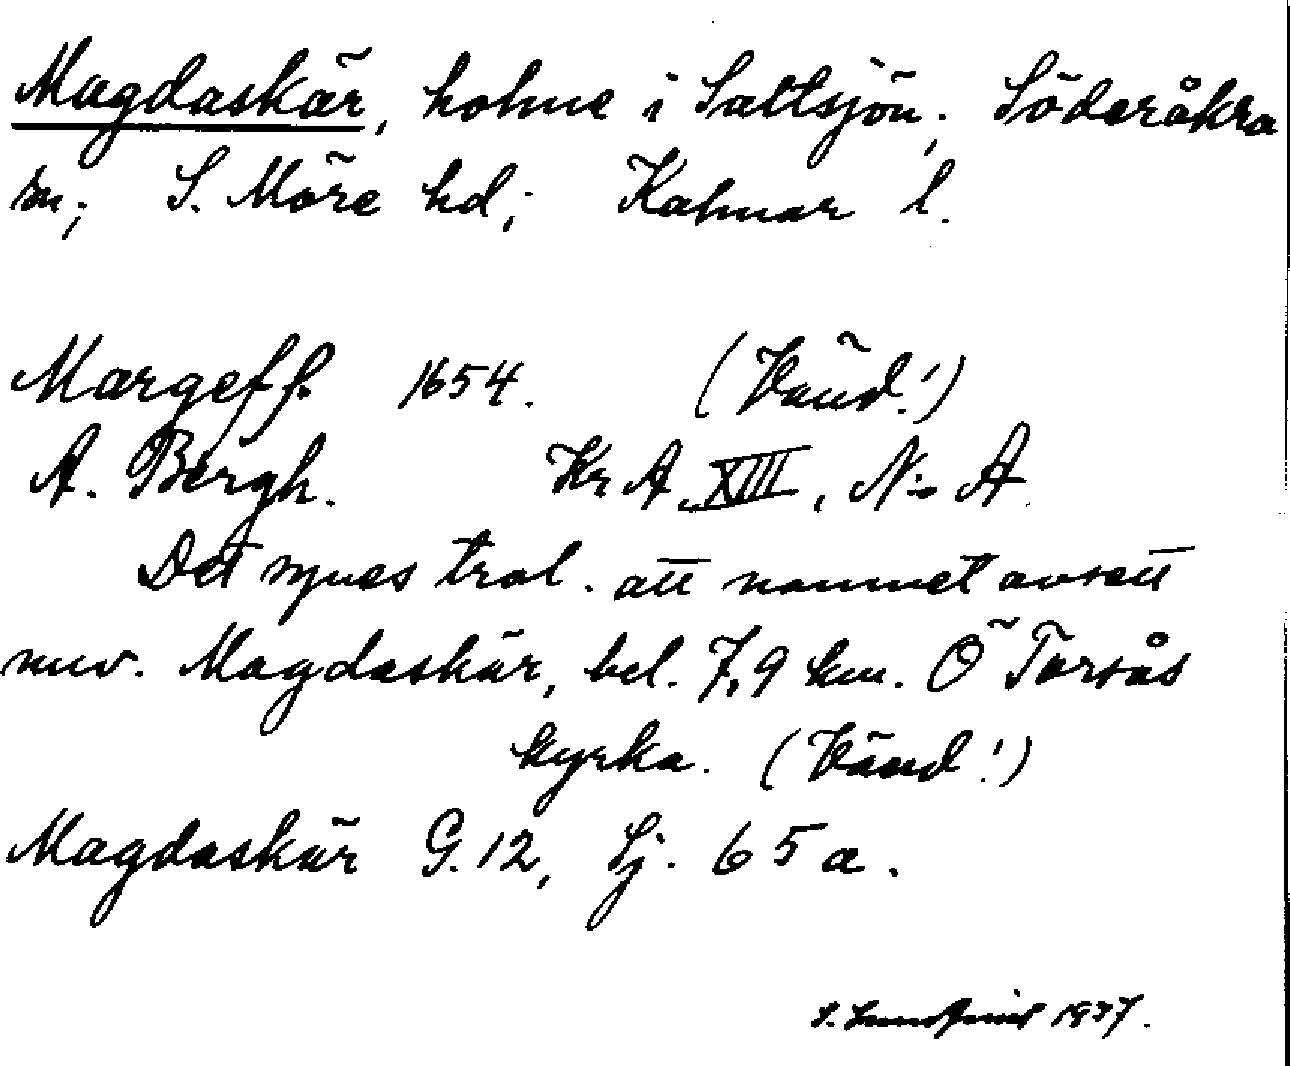 Magdaskär, holme i Saltsjön; Söderåkra
sn; S. Möre hd; Kalmar l.
Margeff. 1654. (Vänd!)
A. Bergh. Kr A. XIII, No A
Det synes trol. att namnet avsett
nuv. Magdaskär, bel. 7,9 km. Ö Torsås
kyrka. (Vänd!)
Magdaskär G. 12, Lj. 65 a.
S. 1937.